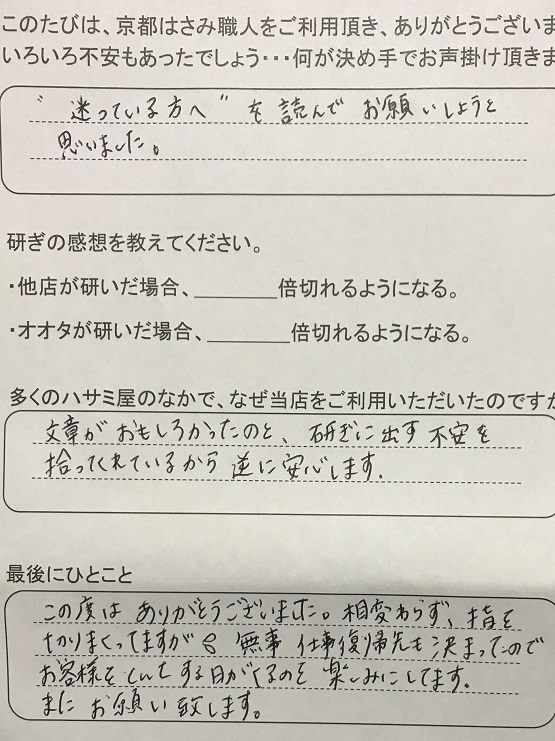 このたびは、京都はさみ職人をご利用頂き、ありがとうございま
いろいろ不安もあったでしょう・・・何が決め手でお声掛け頂きま
"迷っている方へ"を読んでお願いしようと
思いました。
研ぎの感想を教えてください。
・他店が研いだ場合、________倍切れるようになる。
・オオタが研いだ場合、________倍切れるようになる。
多くのハサミ屋のなかで、なぜ当店をご利用いただいたのですか
文章がおもしろかったのと、研ぎに出す不安を
拾ってくれているから逆に安心します.
最後にひとこと
この度はありがとうございました。相変わらず、指を
切りまくってますが 無事仕事復帰先も決まってるので
お客様を する日がくるのを楽しみにしてます.
またお願い致します。